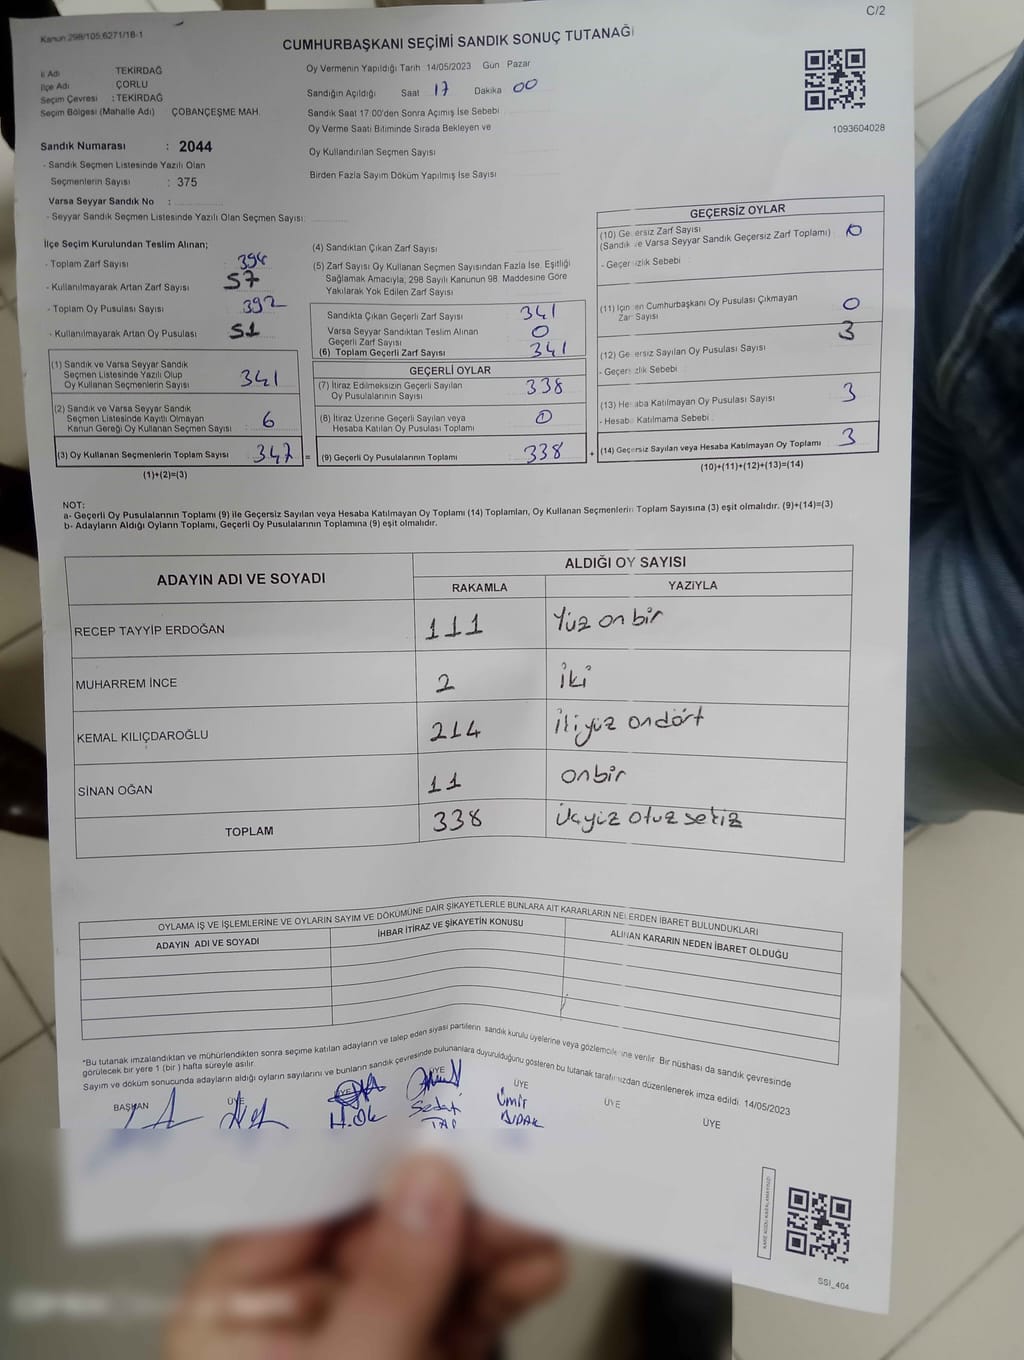 C/2
Kanun:298/105;6271/18-1
CUMHURBAŞKANI SEÇİMİ SANDIK SONUÇ TUTANAĞI
İl Adı TEKİRDAĞ
İlçe Adı ÇORLU
Seçim Çevresi : TEKİRDAĞ
Seçim Bölgesi (Mahalle Adı) ÇOBANÇEŞME MAH.
Oy Vermenin Yapıldığı Tarih 14/05/2023 Gün Pazar
Sandığın Açıldığı Saat 17 Dakika 00
Sandık Saat 17:00'den Sonra Açımış İse Sebebi
Oy Verme Saati Bitiminde Sırada Bekleyen ve
Oy Kullandırılan Seçmen Sayısı
Birden Fazla Sayım Döküm Yapılmış İse Sayısı
1093604028
Sandık Numarası : 2044
- Sandık Seçmen Listesinde Yazılı Olan
Seçmenlerin Sayısı : 375
Varsa Seyyar Sandık No :
- Seyyar Sandık Seçmen Listesinde Yazılı Olan Seçmen Sayısı:
İlçe Seçim Kurulundan Teslim Alınan;
- Toplam Zarf Sayısı 398
- Kullanılmayarak Artan Zarf Sayısı 57
- Toplam Oy Pusulası Sayısı 392
- Kullanılmayarak Artan Oy Pusulası 51
(1) Sandık ve Varsa Seyyar Sandık
Seçmen Listesinde Yazılı Olup
Oy Kullanan Seçmenlerin Sayısı 341
(2) Sandık ve Varsa Seyyar Sandık
Seçmen Listesinde Kayıtlı Olmayan
Kanun Gereği Oy Kullanan Seçmen Sayısı : 6
(3) Oy Kullanan Seçmenlerin Toplam Sayısı 347 =
(1)+(2)=(3)
(4) Sandıktan Çıkan Zarf Sayısı
(5) Zarf Sayısı Oy Kullanan Seçmen Sayısından Fazla İse, Eşitliği
Sağlamak Amacıyla, 298 Sayılı Kanunun 98. Maddesine Göre
Yakılarak Yok Edilen Zarf Sayısı
Sandıkta Çıkan Geçerli Zarf Sayısı 341
Varsa Seyyar Sandıktan Teslim Alınan
Geçerli Zarf Sayısı 0
(6) Toplam Geçerli Zarf Sayısı 341
GEÇERLİ OYLAR
(7) İtiraz Edilmeksizin Geçerli Sayılan
Oy Pusulalarının Sayısı 338
(8) İtiraz Üzerine Geçerli Sayılan veya
Hesaba Katılan Oy Pusulası Toplamı 0
(9) Geçerli Oy Pusulalarının Toplamı 338 +
GEÇERSİZ OYLAR
(10) Geçersiz Zarf Sayısı
(Sandık ve Varsa Seyyar Sandık Geçersiz Zarf Toplamı) 0
- Geçersizlik Sebebi
(11) İçinden Cumhurbaşkanı Oy Pusulası Çıkmayan
Zarf Sayısı 0
3
(12) Geçersiz Sayılan Oy Pusulası Sayısı
- Geçersizlik Sebebi
(13) Hesaba Katılmayan Oy Pusulası Sayısı 3
- Hesaba Katılmama Sebebi
(14) Geçersiz Sayılan veya Hesaba Katılmayan Oy Toplamı 3
(10)+(11)+(12)+(13)=(14)
NOT:
a- Geçerli Oy Pusulalarının Toplamı (9) ile Geçersiz Sayılan veya Hesaba Katılmayan Oy Toplamı (14) Toplamları, Oy Kullanan Seçmenlerin Toplam Sayısına (3) eşit olmalıdır. (9)+(14)=(3)
b- Adayların Aldığı Oyların Toplamı, Geçerli Oy Pusulalarının Toplamına (9) eşit olmalıdır.
ADAYIN ADI VE SOYADI ALDIĞI OY SAYISI
RAKAMLA YAZIYLA
RECEP TAYYİP ERDOĞAN 111 Yüz on bir
MUHARREM İNCE 2 İki
KEMAL KILIÇDAROĞLU 214 İkiyüz ondört
SİNAN OĞAN 11 onbir
TOPLAM 338 Üçyüz otuz sekiz
OYLAMA İŞ VE İŞLEMLERİNE VE OYLARIN SAYIM VE DÖKÜMÜNE DAİR ŞİKAYETLERLE BUNLARA AİT KARARLARIN NELERDEN İBARET BULUNDUKLARI
ADAYIN ADI VE SOYADI İHBAR İTİRAZ VE ŞİKAYETİN KONUSU ALINAN KARARIN NEDEN İBARET OLDUĞU
*Bu tutanak imzalandıktan ve mühürlendikten sonra seçime katılan adayların ve talep eden siyasi partilerin sandık kurulu üyelerine veya gözlemcilerine verilir. Bir nüshası da sandık çevresinde
görülecek bir yere 1 (bir) hafta süreyle asılır.
Sayım ve döküm sonucunda adayların aldığı oyların sayılarını ve bunların sandık çevresinde bulunanlara duyurulduğunu gösteren bu tutanak tarafımızdan düzenlenerek imza edildi. 14/05/2023
BAŞKAN ÜYE ÜYE ÜYE ÜYE ÜYE ÜYE
H.Ok Sedat Ümit
SSI_404